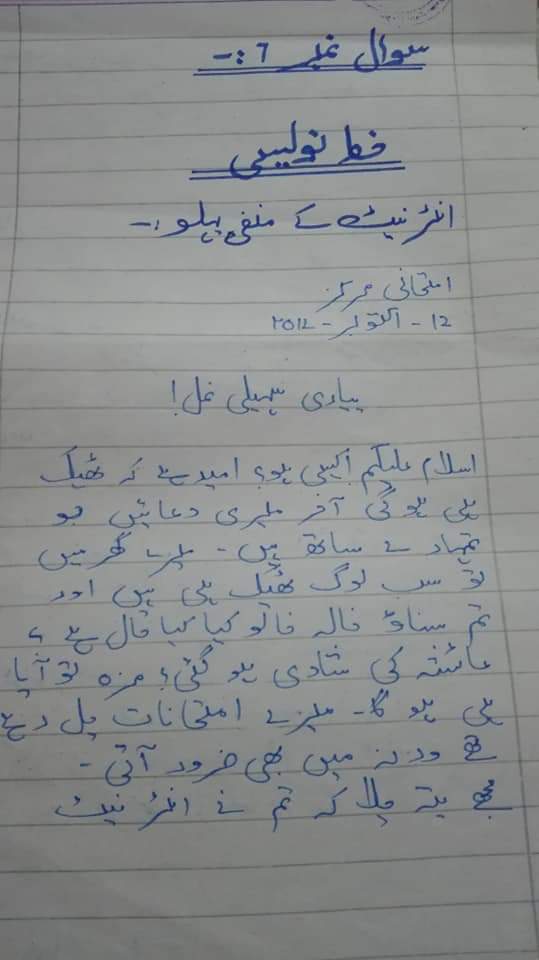 سوال نمبر 7 :-
خط نویسی
انٹرنیٹ کے منفی پہلو :-
امتحانی مرکز
12 - اکتوبر - 2012
پیاری سہیلی غل!
اسلام علیکم! کیسی ہو؟ امید ہے کہ ٹھیک
ہی ہو گی آخر میری دعائیں جو
تمہارے ساتھ ہیں - میرے گھر میں
تو سب لوگ ٹھیک ہی ہیں اور
تم سناؤ خالہ خالو کیا کیا حال ہے ؟
عائشہ کی شادی ہو گئی؟ مزہ تو آیا
ہی ہو گا - میرے امتحانات چل رہے
تھے ورنہ میں بھی ضرور آتی -
مجھے پتہ چلا کہ تم نے انٹرنیٹ